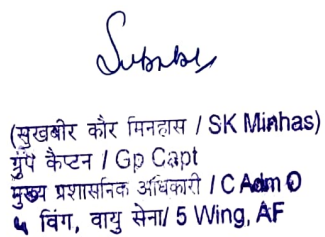 (सुखबीर कौर मिनहास / SK Minhas)
ग्रुप कैप्टन / Gp Capt
मुख्य प्रशासनिक अधिकारी / C Adm O
5 विंग, वायु सेना/ 5 Wing, AF